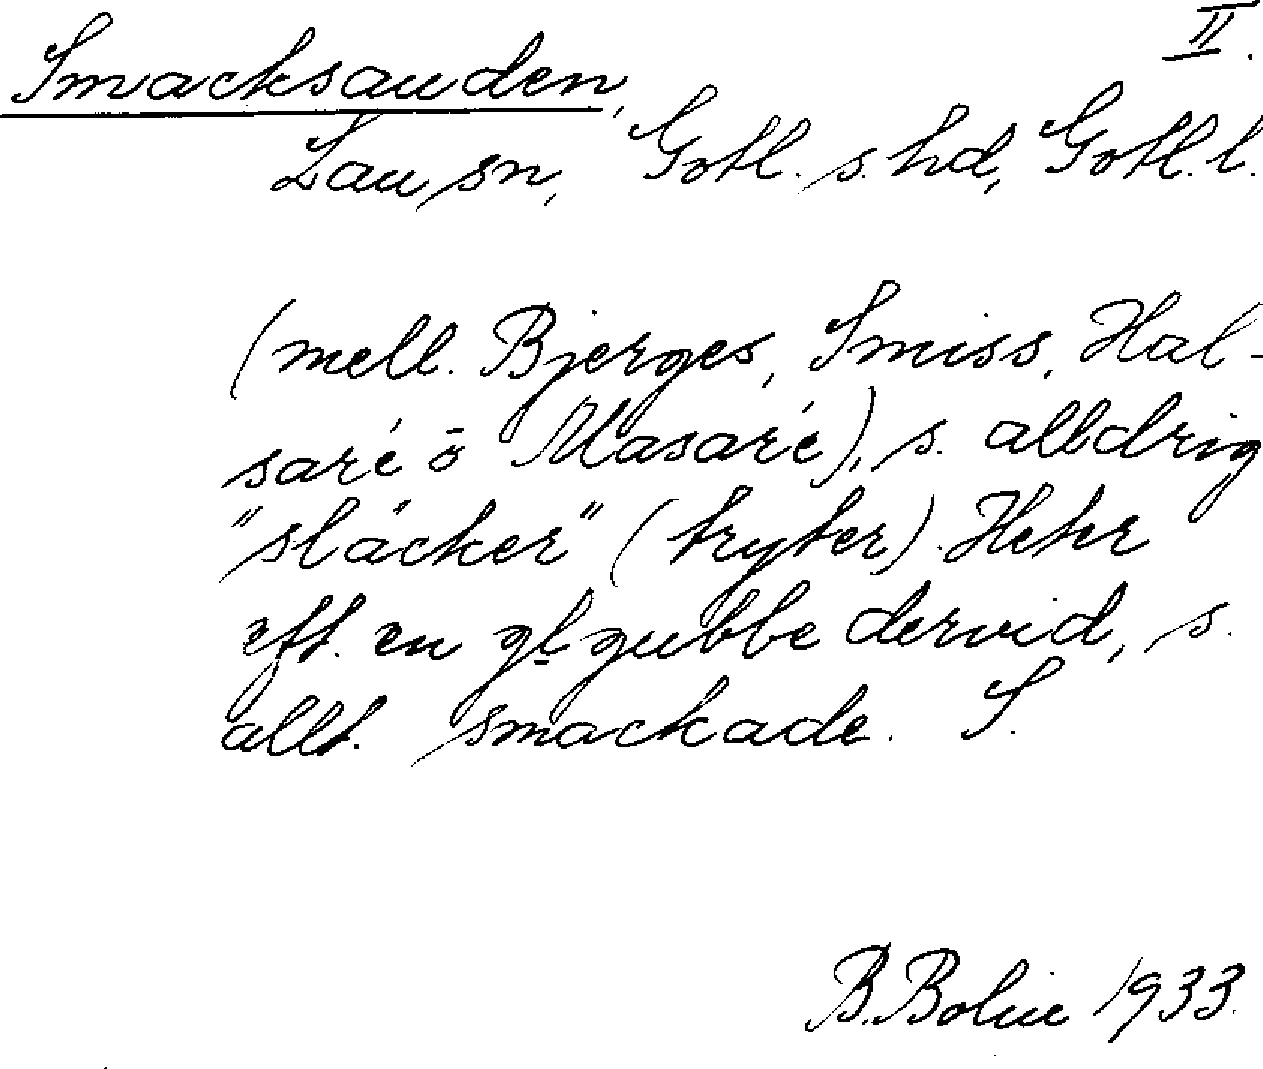 II.
Smacksauden,
Lau sn, Gotl. s. hd, Gotl. l.
(mell. Bjerges, Smiss, Hal-
saré ō Masaré), s. alldrig
"släcker" (tryter). Hetr
eft. en gl. gubbe dervid, s.
allt. smackade. S.
B. Bolin 1933.